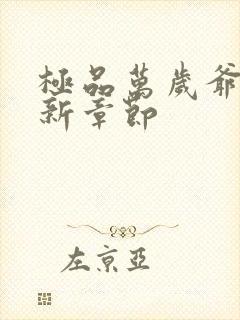 極品萬歲爺
新章節
左京亞